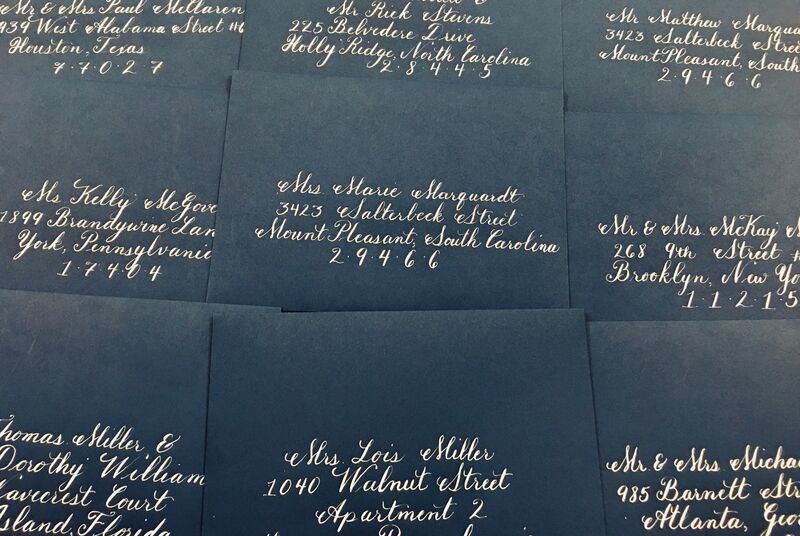 Mr & Mrs Paul McClaren
939 West Alabama Street #6
Houston, Texas
7·7·0·2·7
Mr Rick Stevens
225 Belvedere Drive
Holly Ridge, North Carolina
2·8·4·4·5
Mr Matthew Marqua
3423 Salterbeck Stree
Mount Pleasant, South
2·9·4·6·6
Ms. Kelly McGove
1899 Brandywine Lan
York, Pennsylvania
1·7·4·0·4
Mrs. Marie Marquardt
3423 Salterbeck Street
Mount Pleasant, South Carolina
2·9·4·6·6
Mr. & Mrs. McKay
268 9th Street #
Brooklyn, New Yo
1·1·2·1·5
Thomas Miller &
Dorothy William
Wavecrest Court
Island, Florida
Mrs. Lois Miller
1040 Walnut Street
Apartment 2
Mr. & Mrs Michae
985 Barnett Str
Atlanta, Geo